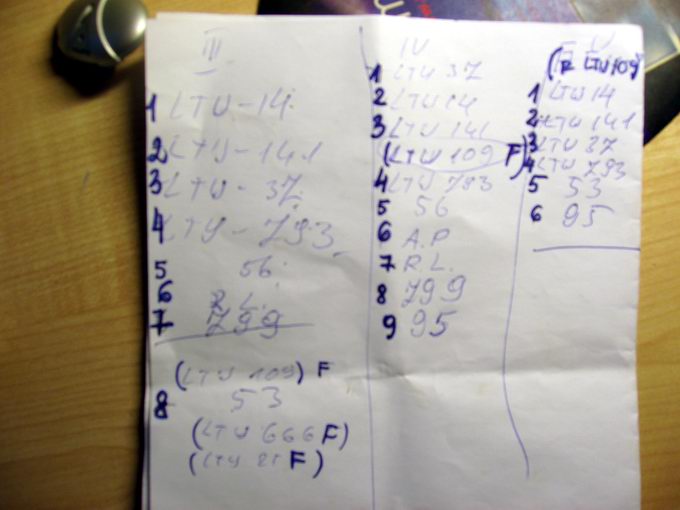 III
1 LTU-14
2 LTU-141
3 LTU-37
4 LTU-793
5 56
6 R.L.
7 799
(LTU 109) F
8 53
(LTU 666 F)
(LTU 21 F)
IV
1 LTU 37
2 LTU 14
3 LTU 141
(LTU 109 F)
4 LTU 793
5 56
6 A.P
7 R.L.
8 799
9 95
V
LTU 109
1 LTU 14
2 LTU 141
3 LTU 37
4 LTU 793
5 53
6 95